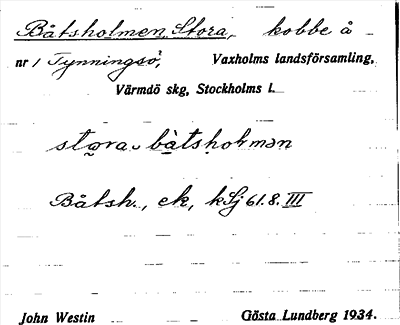 Båtsholmen, Stora, kobbe å
nr 1 Tynningsö, Vaxholms landsförsamling,
Värmdö skg, Stockholms l.
stora bàtsholmən
Båtsh., ek, kSj 61.8. III
John Westin Gösta Lundberg 1934.